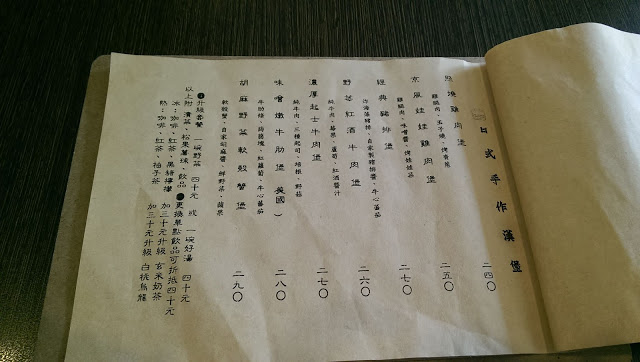 日式手作漢堡
照燒雞肉堡 二四〇
雞腿肉、玉子燒、烤青蔥
京風娃娃雞肉堡 二五〇
雞腿肉、味噌醬、烤娃娃菜
經典豬排堡 二七〇
沙海藻豬排、自家製豬排醬、牛心蕃茄
野莓紅酒牛肉堡 二六〇
純牛肉、莓果、蘆筍、紅酒醬汁
濃厚起士牛肉堡 二七〇
純牛肉、三種起司、培根、野菇
味噌嫩牛肋堡（美國） 二八〇
牛肋條、筊白筍、紅蘿蔔、牛心蕃茄
胡麻野菜軟殼蟹堡 二九〇
軟殼蟹、自家胡麻醬、鮮野菜、蘋果
升級套餐 一碗野菜 四十元 或 一碗好湯 四十元
以上附 漬菜、松果薯球、飲品 更換單點飲品可折抵四十元
冰：咖啡、紅茶、黑糖檸檬 加三十元升級 玄米奶茶
熱：咖啡、紅茶、柚子茶 加三十元升級 白桃烏龍